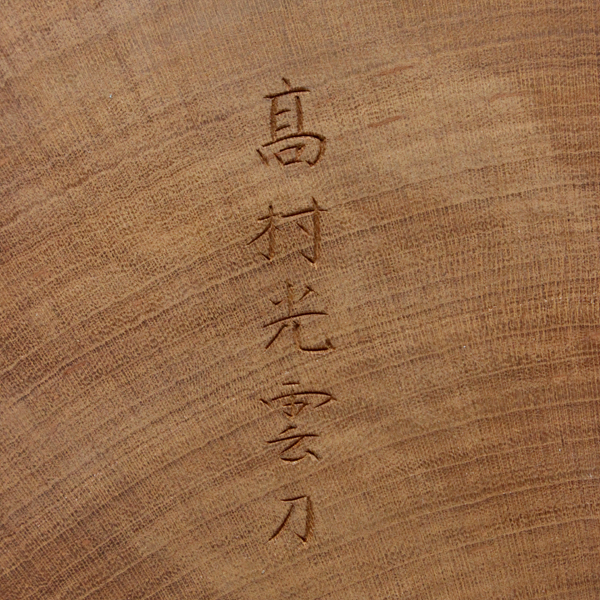 髙村光雲刀